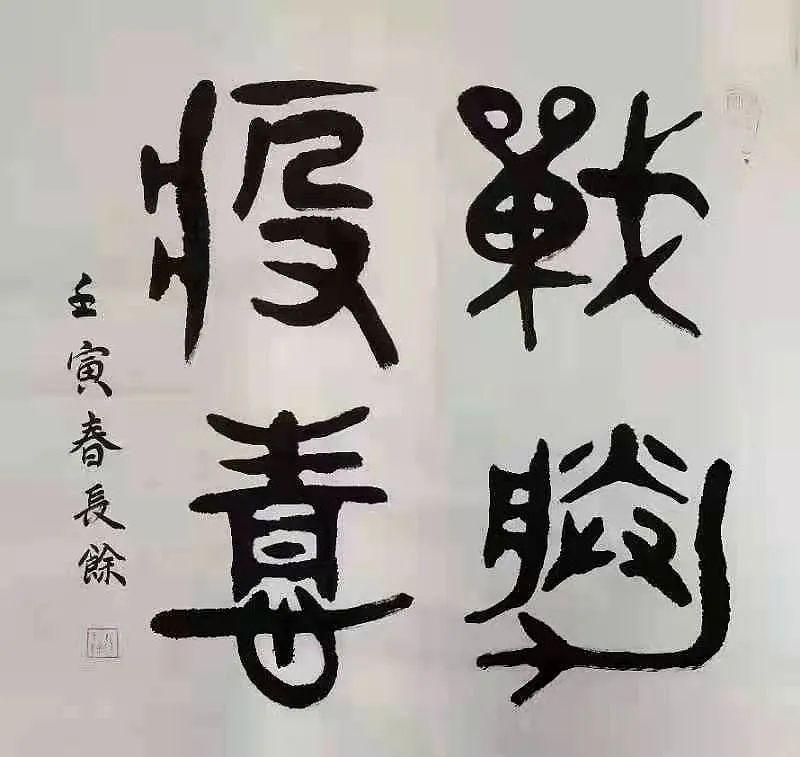 戰勝
疫毒
壬寅春長餘